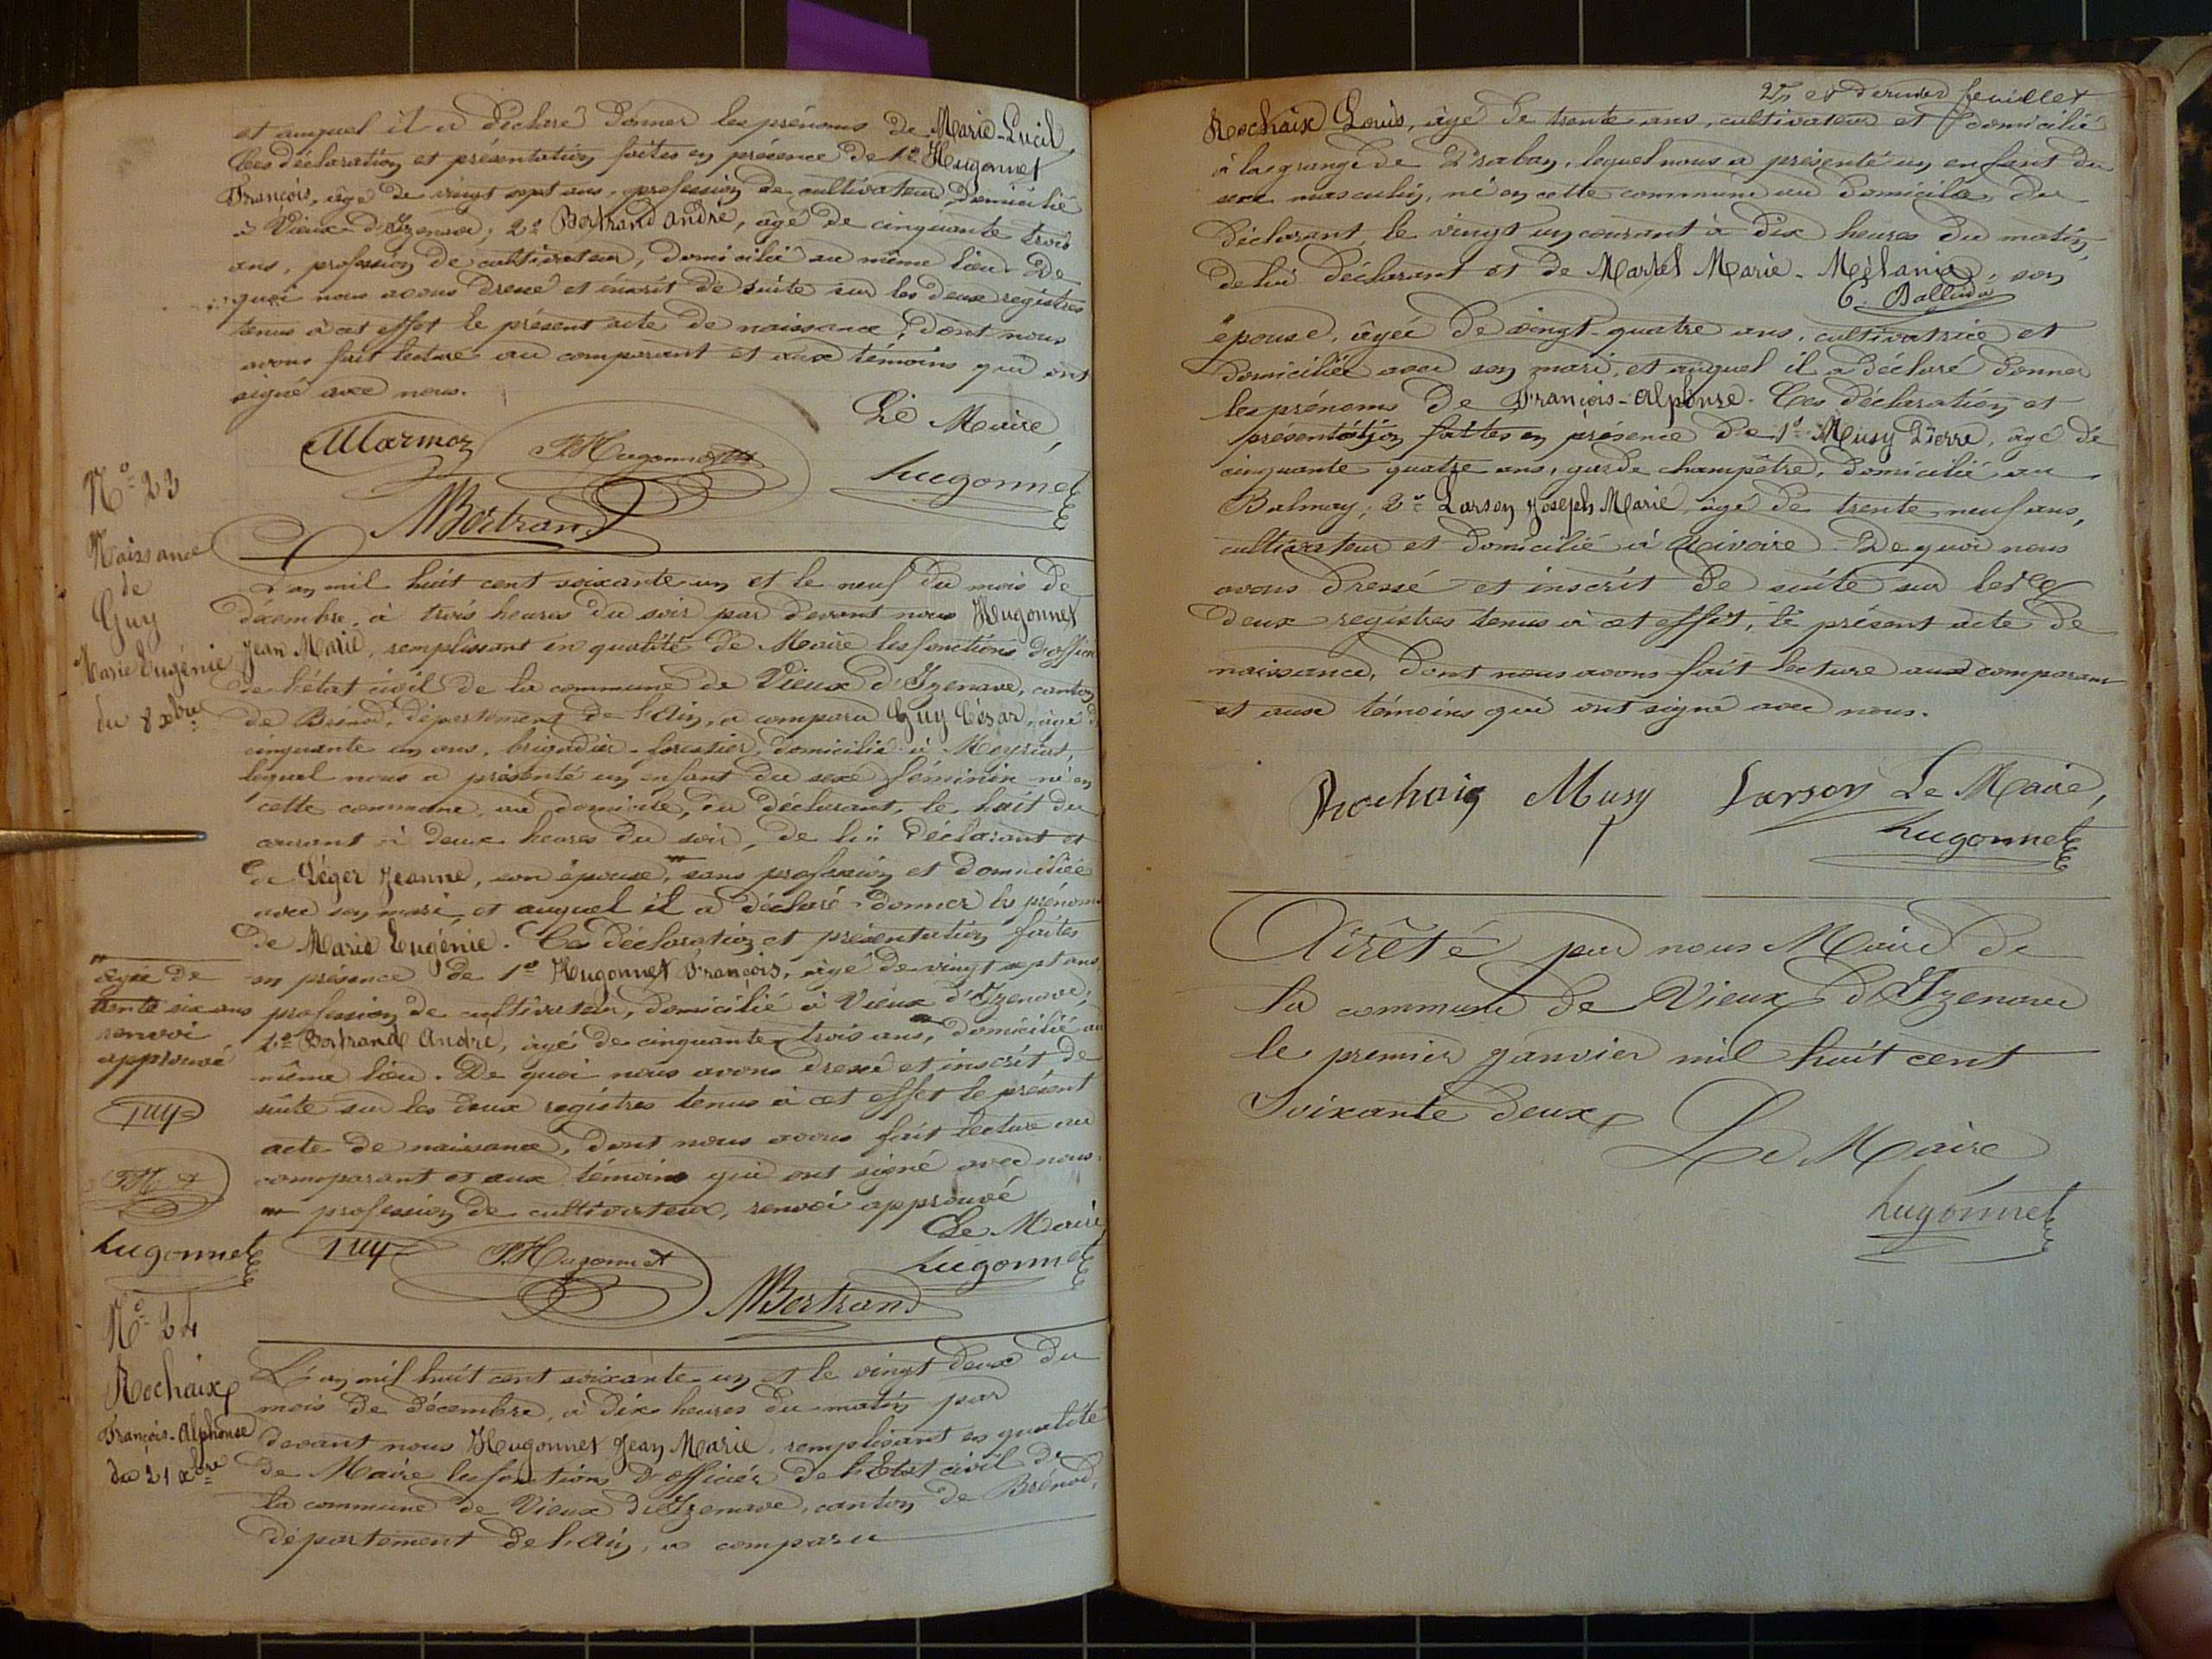 et auquel il a déclaré donner les prénoms de Marie-Lucil,
Ces déclaration et présentation faites en présence de 1º Hugonnet
François, âgé de vingt sept ans, profession de cultivateur, domicilié
à Vieux d'Izenave; 2º Bertrand André, âgé de cinquante trois
ans, profession de cultivateur, domicilié au même lieu. De
quoi nous avons dressé et inscrit de suite sur les deux registres
tenus à cet effet le présent acte de naissance, dont nous
avons fait lecture au comparant et aux témoins qui ont
signé avec nous.
Le Maire,
Marmoz
FHugonnet
hugonnet
ABertrand
Nº 23
Naissance
de
Guy
Marie Eugénie
du 8 xbre
L'an mil huit cent soixante un et le neuf du mois de
décembre, à trois heures du soir par devant nous Hugonnet
Jean Marie, remplissant en qualité de Maire les fonctions d'officier
de l'état civil de la commune de Vieux d'Izenave, canton
de Brénod, département de l'Ain, a comparu Guy César, âgé de
cinquante un ans, brigadier-forestier, domicilié à Meyriat,
lequel nous a présenté un enfant du sexe féminin né en
cette commune, au domicile, du déclarant, le huit du
courant à deux heures du soir, de lui déclarant et
de Léger Jeanne, son épouse, sans profession et domiciliée
avec son mari, et auquel il a déclaré donner les prénoms
de Marie Eugénie. Ces déclaration et présentation faites
en présence de 1º Hugonnet François, âgé de vingt sept ans,
profession de cultivateur, domicilié à Vieux d'Izenave;
2º Bertrand André, âgé de cinquante trois ans, domicilié au
même lieu. De quoi nous avons dressé et inscrit de
suite sur les deux registres tenus à cet effet le présent
acte de naissance, dont nous avons fait lecture au
comparant et aux témoins qui ont signé avec nous.
profession de cultivateur, renvoi approuvé
Le Maire
Guy
FHugonnet
hugonnet
ABertrand
âgée de
trente six ans
renvoi
approuvé
Guy
FHt
hugonnet
Nº 24
Rochaix
François-Alphonse
du 21 xbre
L'an mil huit cent soixante un et le vingt deux du
mois de décembre, à dix heures du matin par
devant nous Hugonnet Jean Marie, remplissant en qualité
de Maire les fonctions d'officier de l'Etat civil de
la commune de Vieux d'Izenave, canton de Brénod,
département de l'Ain, a comparu
et dernier feuillet
Rochaix Louis, âgé de trente ans, cultivateur et domicilié
à la grange de Praban, lequel nous a présenté un enfant du
sexe masculin, né en cette commune au domicile du
déclarant, le vingt un courant à dix heures du matin,
de lui déclarant et de Martel Marie-Mélanie, son
épouse, âgée de vingt-quatre ans, cultivatrice et
domiciliée avec son mari, et auquel il a déclaré donner
les prénoms de François-Alphonse. Ces déclaration et
présentation faites en présence de 1º Musy Pierre, âgé de
cinquante quatre ans, garde champêtre, domicilié au
Balmay; 2º Larson Joseph Marie, âgé de trente neuf ans,
cultivateur et domicilié à Rivoire. De quoi nous
avons dressé et inscrit de suite sur les
deux registres tenus à cet effet, le présent acte de
naissance, dont nous avons fait lecture aux comparant
et aux témoins qui ont signé avec nous.
Rochaix Musy Larson Le Maire,
hugonnet
Arrêté par nous Maire de
la commune de Vieux d'Izenave
le premier janvier mil huit cent
soixante deux
Le Maire
hugonnet